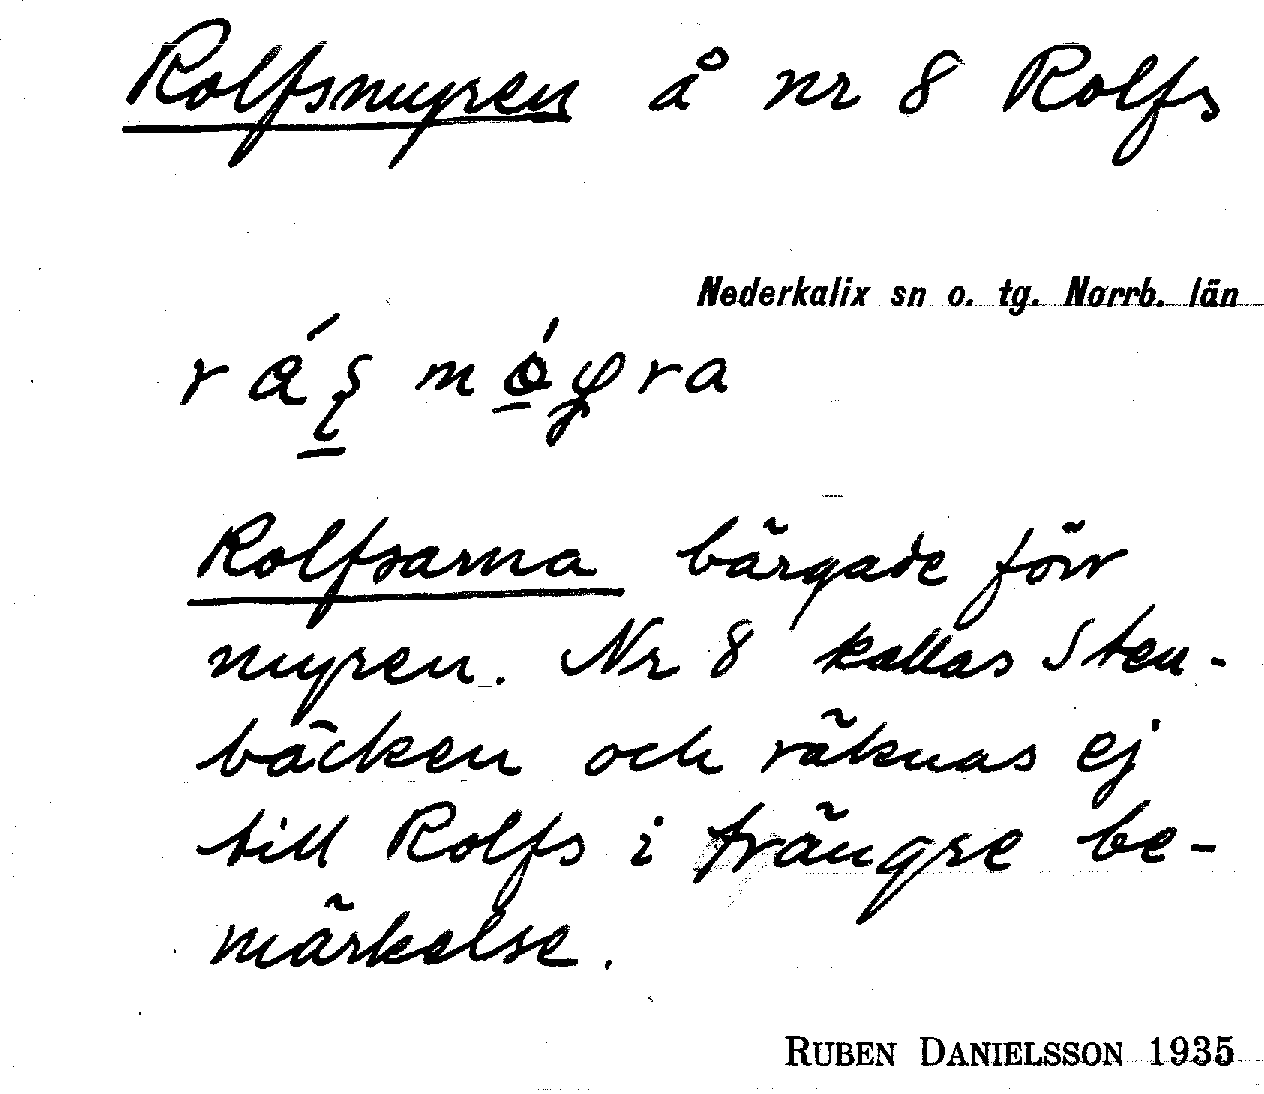 Rolfsmyren å nr 8 Rolfs
Nederkalix sn o. tg. Norrb. län
Rolfsarna bärgade förr
myren. Nr 8 kallas Sten-
bäcken och räknas ej
till Rolfs i trängre be-
märkelse.
RUBEN DANIELSSON 1935